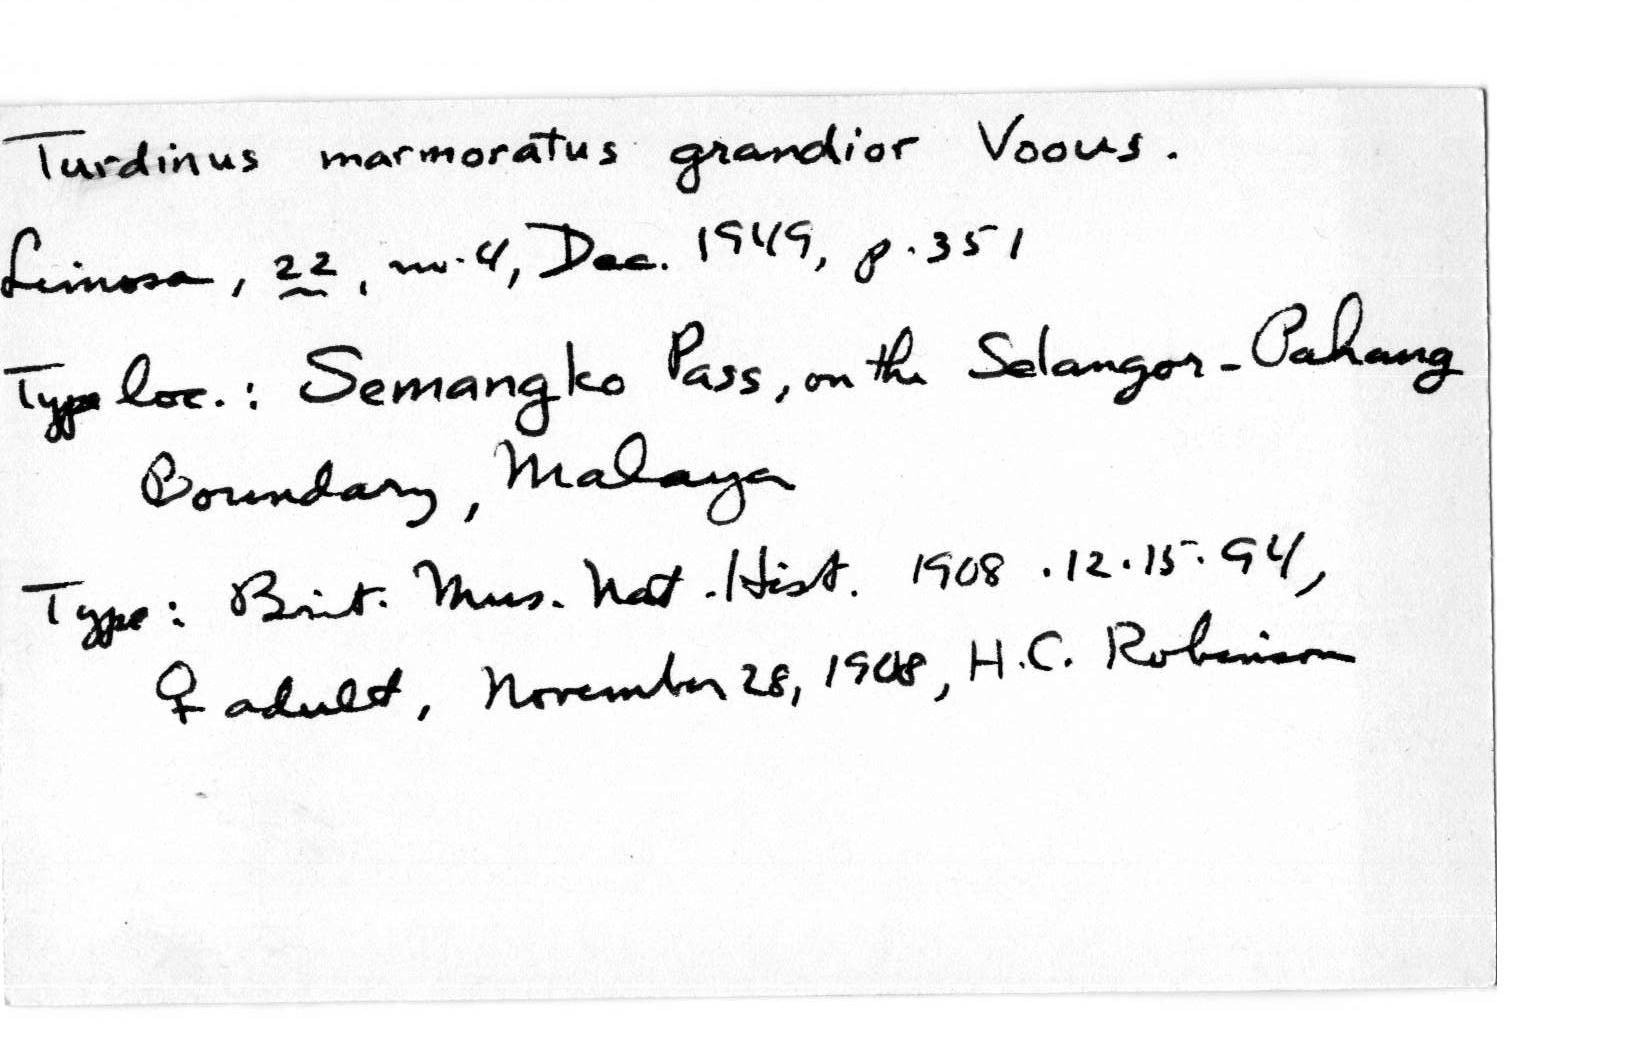 Turdinus marmoratus grandior Voous.
Limosa, 22, no. 4, Dec. 1949, p. 351
Type loc.: Semangko Pass, on the Selangor-Pahang
Boundary, Malaya
Type: Brit. Mus. Nat. Hist. 1908.12.15.94,
♀ adult, November 28, 1908, H.C. Robinson